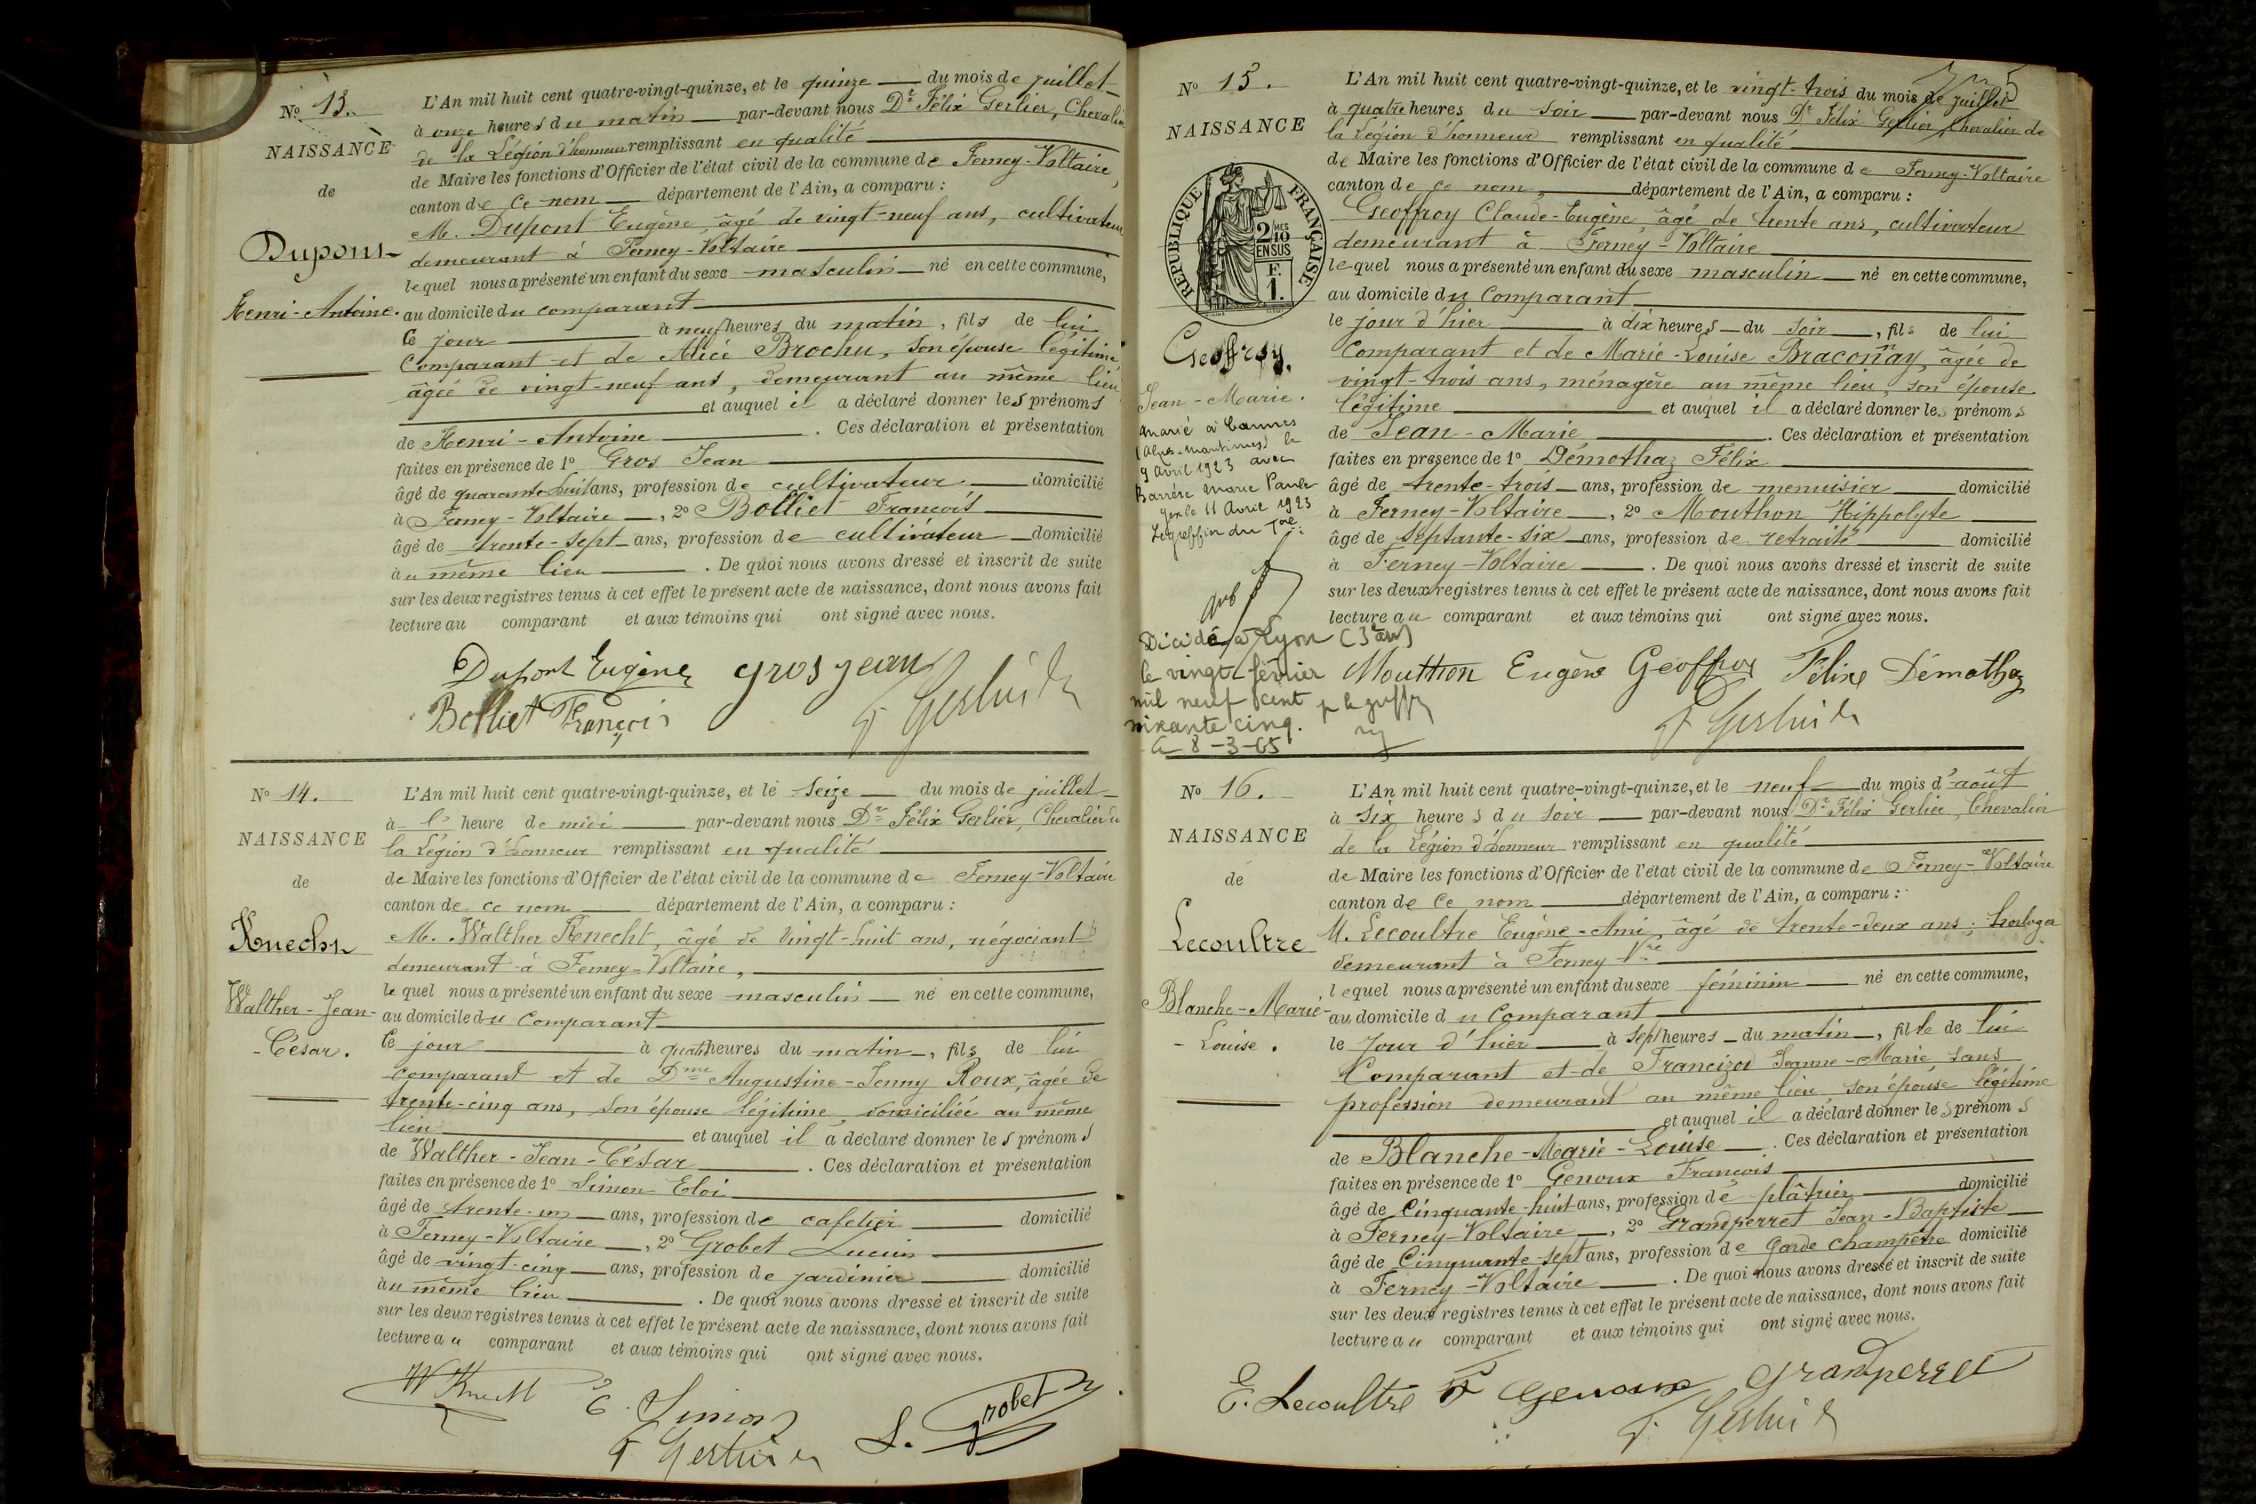 No 13.
NAISSANCE
de
Dupont
Henri-Antoine.
L'An mil huit cent quatre-vingt-quinze, et le quinze du mois de juillet
à onze heures du matin par-devant nous Dr Félix Gerlier, Chevalier
de la Légion d'honneur remplissant en qualité
de Maire les fonctions d'Officier de l'état civil de la commune de Ferney-Voltaire,
canton de Ce nom département de l'Ain, a comparu :
M. Dupont Eugène, âgé de vingt-neuf ans, cultivateur
demeurant à Ferney-Voltaire
lequel nous a présenté un enfant du sexe masculin né en cette commune,
au domicile du comparant
Ce jour à neuf heures du matin, fils de lui
Comparant et de Alice Brochu, son épouse légitime
âgée de vingt-neuf ans, demeurant au même lieu
et auquel il a déclaré donner les prénoms
de Henri-Antoine. Ces déclaration et présentation
faites en présence de 1º Gros Jean
âgé de quarante huit ans, profession de cultivateur domicilié
à Ferney-Voltaire, 2º Bolliet François
âgé de trente-sept ans, profession de cultivateur domicilié
au même lieu. De quoi nous avons dressé et inscrit de suite
sur les deux registres tenus à cet effet le présent acte de naissance, dont nous avons fait
lecture au comparant et aux témoins qui ont signé avec nous.
Dupont Eugène gros jean
Bolliet François
No 14.
NAISSANCE
de
Knecht
Walther-Jean-
-César.
L'An mil huit cent quatre-vingt-quinze, et le seize du mois de juillet
à l' heure de midi par-devant nous Dr Félix Gerlier, Chevalier de
la Légion d'honneur remplissant en qualité
de Maire les fonctions d'Officier de l'état civil de la commune de Ferney-Voltaire
canton de ce nom département de l'Ain, a comparu :
M. Walther Knecht, âgé de vingt-huit ans, négociant
demeurant à Ferney-Voltaire,
lequel nous a présenté un enfant du sexe masculin né en cette commune,
au domicile du Comparant
Ce jour à quatre heures du matin, fils de lui
comparant et de Dme Augustine-Jenny Roux, âgée de
trente-cinq ans, son épouse légitime, domiciliée au même
lieu et auquel il a déclaré donner les prénoms
de Walther-Jean-César. Ces déclaration et présentation
faites en présence de 1º Simon Eloi
âgé de trente-un ans, profession de cafetier domicilié
à Ferney-Voltaire, 2º Grobet Lucien
âgé de vingt-cinq ans, profession de jardinier domicilié
au même lieu. De quoi nous avons dressé et inscrit de suite
sur les deux registres tenus à cet effet le présent acte de naissance, dont nous avons fait
lecture au comparant et aux témoins qui ont signé avec nous.
W Knecht E. Simon L. Grobet
No 15.
NAISSANCE
RÉPUBLIQUE FRANÇAISE
2/10 MES
EN SUS
F.
1.
Geoffroy.
Jean-Marie.
marié à Cannes
(Alpes-Maritimes) le
9 avril 1923 avec
Barrère Marie Paule
Gex le 11 Avril 1923
Le greffier du Tral:
Décidé à Lyon (3e arr)
le vingt février
mil neuf cent
soixante cinq.
Le 8-3-65
L'An mil huit cent quatre-vingt-quinze, et le vingt-trois du mois de juillet
à quatre heures du soir par-devant nous Dr Félix Gerlier, Chevalier de
la Légion d'honneur remplissant en qualité
de Maire les fonctions d'Officier de l'état civil de la commune de Ferney-Voltaire
canton de ce nom, département de l'Ain, a comparu :
Geoffroy Claude-Eugène, âgé de trente ans, cultivateur
demeurant à Ferney-Voltaire
lequel nous a présenté un enfant du sexe masculin né en cette commune,
au domicile du Comparant
le jour d'hier à dix heures du soir, fils de lui
comparant et de Marie-Louise Braconnay, âgée de
vingt-trois ans, ménagère au même lieu, son épouse
légitime et auquel il a déclaré donner les prénoms
de Jean-Marie. Ces déclaration et présentation
faites en présence de 1º Démothaz Félix
âgé de trente-trois ans, profession de menuisier domicilié
à Ferney-Voltaire, 2º Mouthon Hippolyte
âgé de septante-six ans, profession de retraité domicilié
à Ferney-Voltaire. De quoi nous avons dressé et inscrit de suite
sur les deux registres tenus à cet effet le présent acte de naissance, dont nous avons fait
lecture au comparant et aux témoins qui ont signé avec nous.
Mouthon Eugène Geoffroy Félix Démothaz
No 16.
NAISSANCE
de
Lecoultre
Blanche-Marie-
-Louise.
L'An mil huit cent quatre-vingt-quinze, et le neuf du mois d'août
à six heures du soir par-devant nous Dr Félix Gerlier, Chevalier
de la Légion d'honneur remplissant en qualité
de Maire les fonctions d'Officier de l'état civil de la commune de Ferney-Voltaire
canton de Ce nom département de l'Ain, a comparu :
M. Lecoultre Eugène-Ami, âgé de trente-deux ans, horloger
demeurant à Ferney-Vre
lequel nous a présenté un enfant du sexe féminin né en cette commune,
au domicile du Comparant
le jour d'hier à sept heures du matin, fille de lui
Comparant et de Francizod Jeanne-Marie, sans
profession demeurant au même lieu, son épouse légitime
et auquel il a déclaré donner les prénoms
de Blanche-Marie-Louise. Ces déclaration et présentation
faites en présence de 1º Genoux François
âgé de Cinquante-huit ans, profession de plâtrier domicilié
à Ferney-Voltaire, 2º Grandperret Jean-Baptiste
âgé de Cinquante-sept ans, profession de garde champêtre domicilié
à Ferney-Voltaire. De quoi nous avons dressé et inscrit de suite
sur les deux registres tenus à cet effet le présent acte de naissance, dont nous avons fait
lecture au comparant et aux témoins qui ont signé avec nous.
E. Lecoultre F Genoux Grandperret